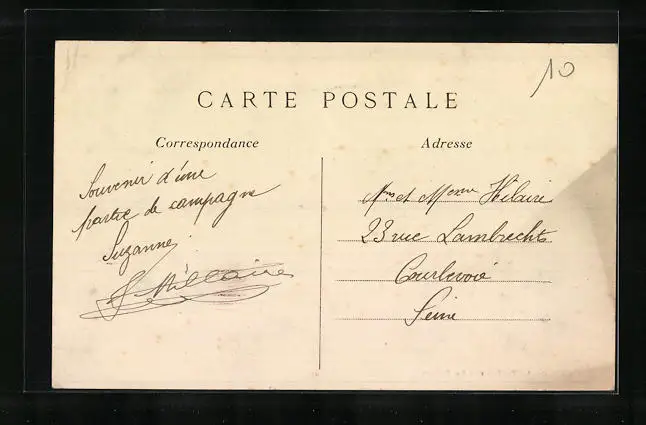 10
CARTE POSTALE
Correspondance
Souvenir d'une
partie de campagne
Suzanne
Adresse
et Mme Hilaire
23 rue Lambrechts
Courbevoie
Seine